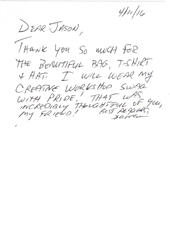 4/11/16
Dear Jason,
Thank you so much for
the beautiful bag, T-shirt
+ hat. I will wear my
Creative Workshop swag
with pride! That was
incredibly thoughtful of you,
my friend! Best regards,